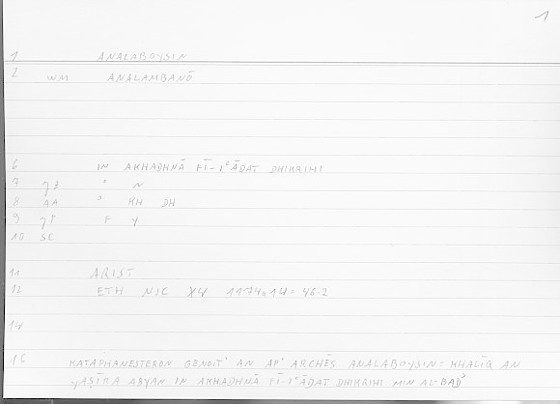 1
1 ANALABOYSIN
2 WM ANALAMBANŌ
6 IN AKHADHNĀ FĪ-IʿĀDAT DHIKRIHI
7 ʾ N
8 AA ʾ KH DH
9 F Y
10 SC
11 ARIST
12 ETH NIC X4 1174a14: 46.2
14
16 KATAPHANESTERON GENOIT' AN AP' ARCHĒS ANALABOYSIN: KHALĪQ AN
YAṢĪRA ABYAN IN AKHADHNĀ FĪ-IʿĀDAT DHIKRIHI MIN AL-BADʾ